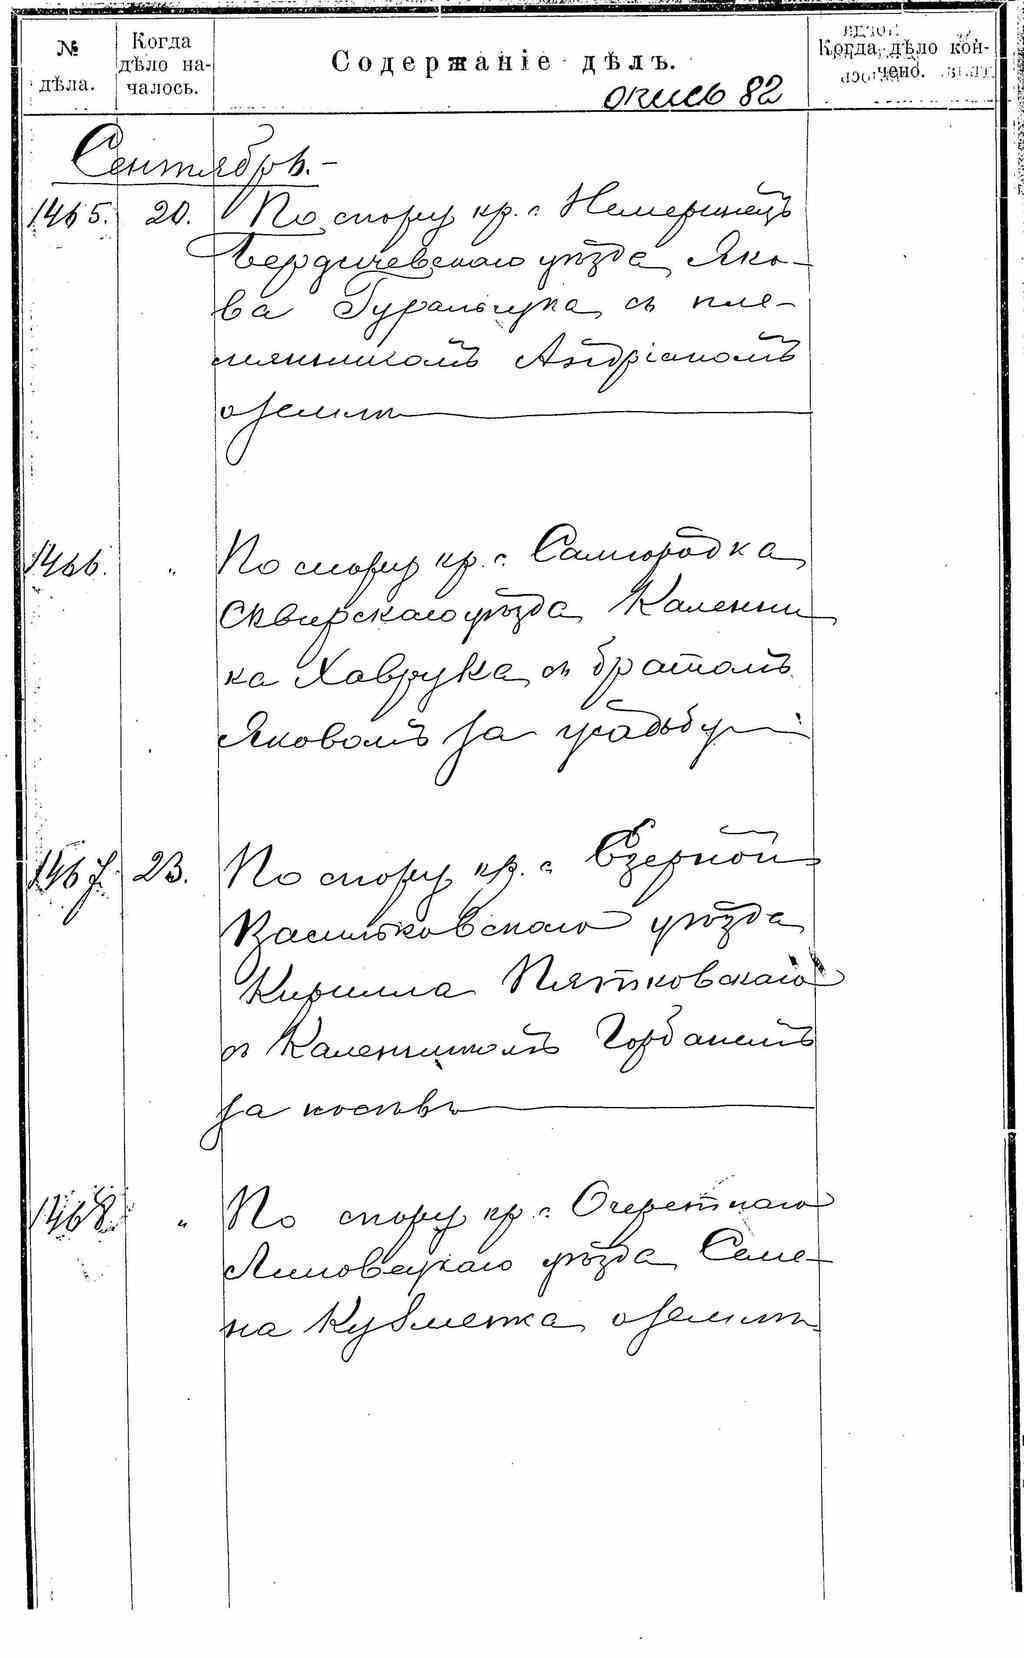 № дѣла.
Когда дѣло на-
чалось.
Содержаніе дѣлъ.
Когда дѣло кон-
чено.
опись 82
Сентябрь.-
1465. 20. По спору кр. с. Немеринецъ
Бердичевскаго уѣзда Яко-
ва Гуральчука съ пле-
мянникомъ Андріаномъ
о землѣ
1466. " По спору кр. с. Самгородка
Сквирскаго уѣзда Каленни
ка Хаврука съ братомъ
Яковомъ за усадьбу
1467. 23. По спору кр. с. Езерной
Васильковскаго уѣзда
Кирилла Пятковскаго
съ Каленникомъ Горбанемъ
за посѣвъ
1468. " По спору кр. с. Очеретнаго
Липовецкаго уѣзда Семе-
на Кузметка о землѣ